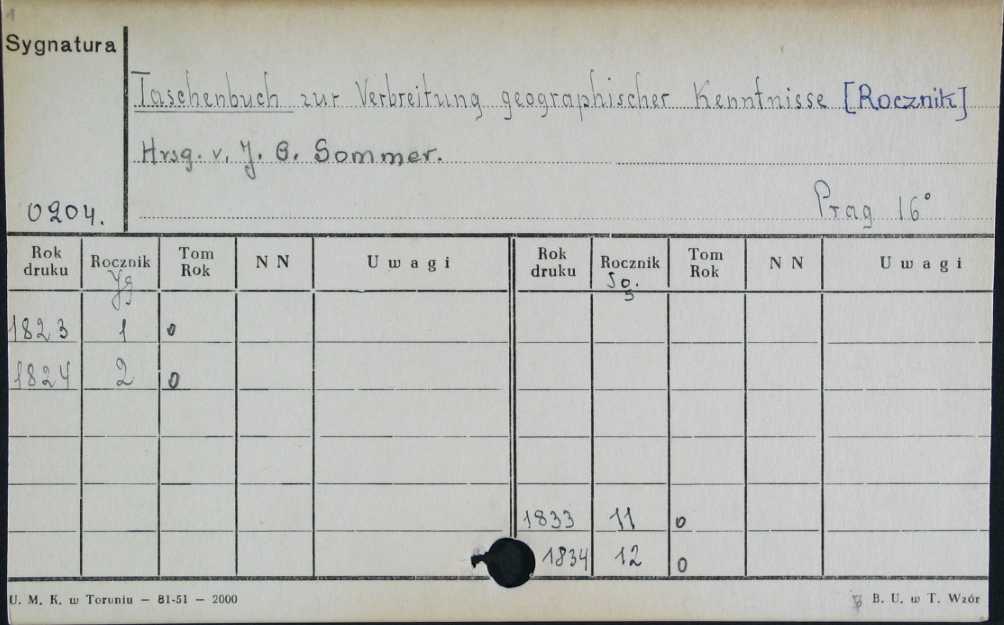 1
Sygnatura
Taschenbuch zur Verbreitung geographischer Kenntnisse [Rocznik]
Hrsg. v. J. G. Sommer.
0204.
Prag 16°
Rok druku Rocznik Tom Rok N N Uwagi Rok druku Rocznik Tom Rok N N Uwagi
Jg Jg.
1823 1 0
1824 2 0
1833 11 0
1834 12 0
U. M. K. w Toruniu — 81-51 — 2000
B. U. w T. Wzór